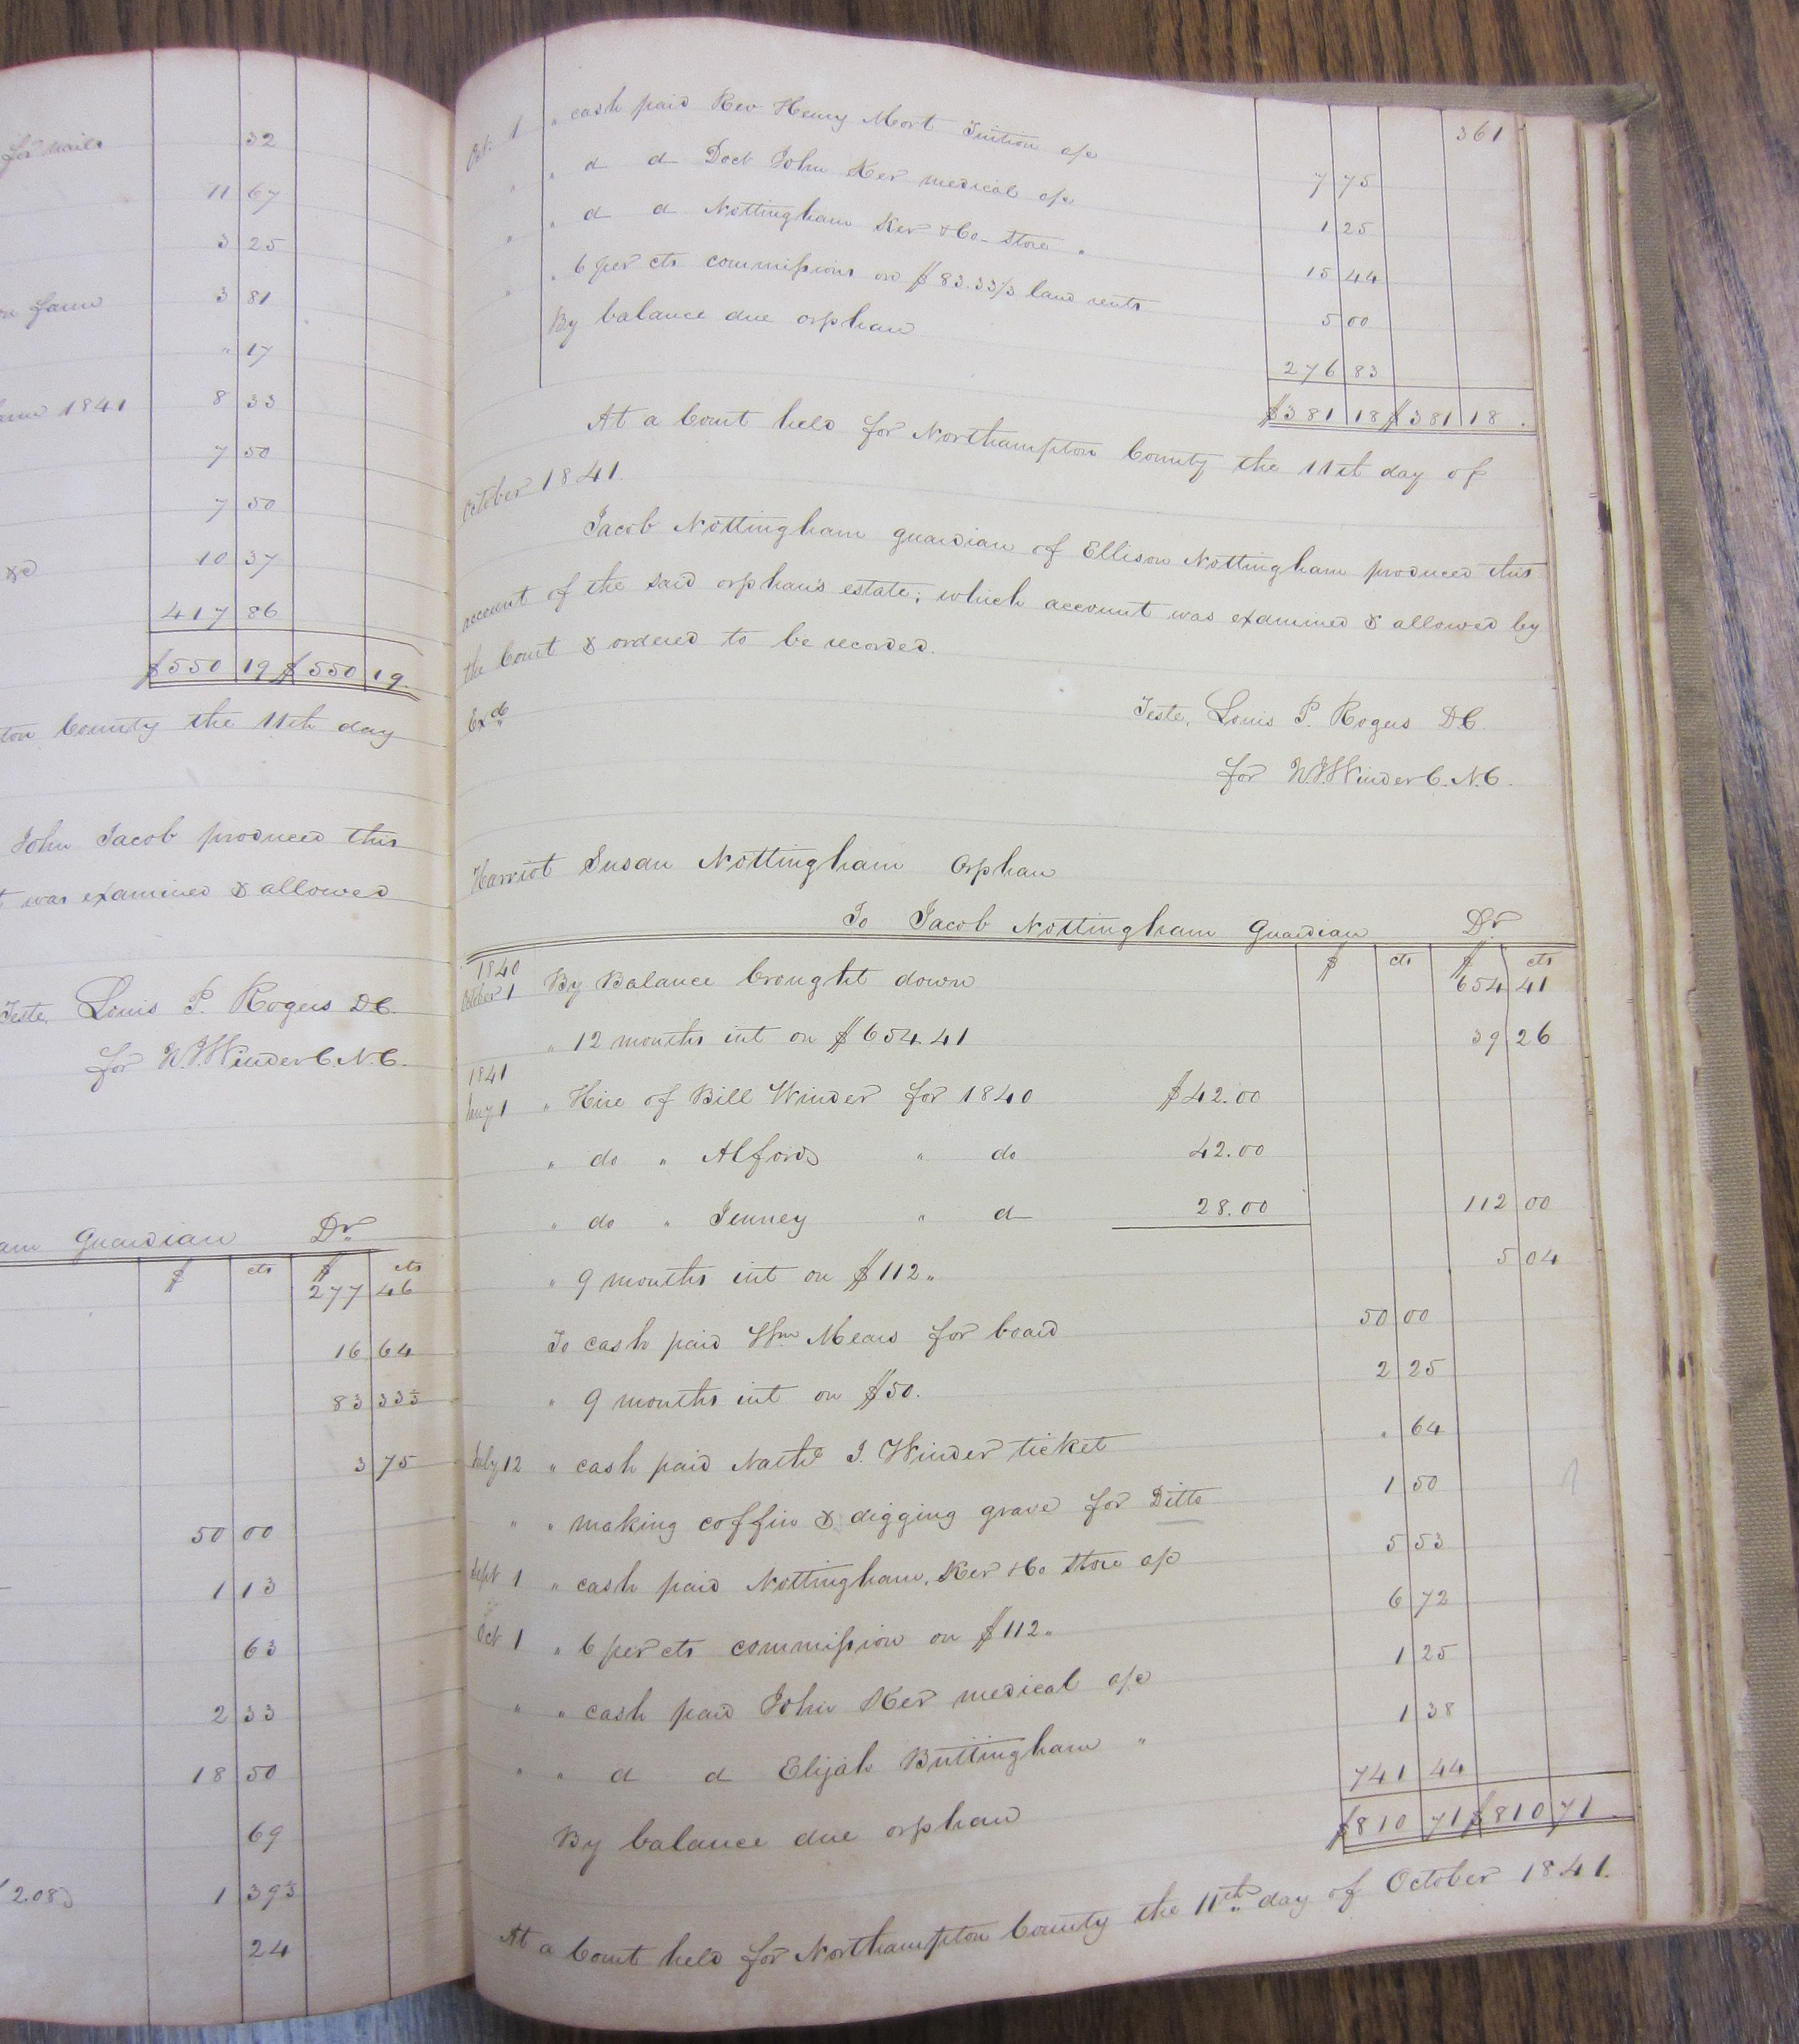 for nails 32
11 67
3 25
farm 3 81
" 17
1841 8 33
7 50
7 50
&c 10 37
417 86
$550 19 $550 19.
ton County the 11th day
John Jacob produced this
was examined & allowed
Teste, Louis P. Rogers D.C.
for N.J. Winder C.N.C.
am Guardian Dr
$ cts $ cts
277 46
16 64
83 33⅓
3 75
50 00
1 13
63
2 33
18 50
69
2.08) 1 39
24
361
Oct: 1 " cash paid Rev Henry Mort Tuition a/c 7 75
" " d d Doct John Ker medical a/c 1 25
" " d d Nottingham Ker & Co- Store " 15 44
" " 6 per cts commissions on $83.33⅓ land rents 5 00
By balance due orphan 276 83
$381 18 $381 18.
At a Court held for Northampton County the 11th day of
October 1841.
Jacob Nottingham guardian of Ellison Nottingham produced this
account of the said orphan's estate; which account was examined & allowed by
the Court & ordered to be recorded.
Exd
Teste, Louis P. Rogers D.C.
for N.J. Winder C.N.C.
Harriot Susan Nottingham Orphan
To Jacob Nottingham Guardian Dr
$ cts $ cts
1840
October 1 By Balance brought down 654 41
" 12 months int on $654.41 39 26
1841
Jany 1 " Hire of Bill Winder for 1840 $42.00
" do " Alford " do 42.00
" do " Jenney " d 28.00 112 00
" 9 months int on $112" 5 04
To cash paid Wm Mears for board 50 00
" 9 months int on $50. 2 25
July 12 " cash paid Nathl J. Winder ticket " 64
" " making coffin & digging grave for Ditto 1 50
Sept 1 " cash paid Nottingham, Ker & Co Store a/c 5 53
Oct 1 " 6 per cts commission on $112" 6 72
" " cash paid John Ker medical a/c 1 25
" " d d Elijah Buttingham " 1 38
By balance due orphan 741 44
$810 71 $810 71.
At a Court held for Northampton County the 11th day of October 1841.